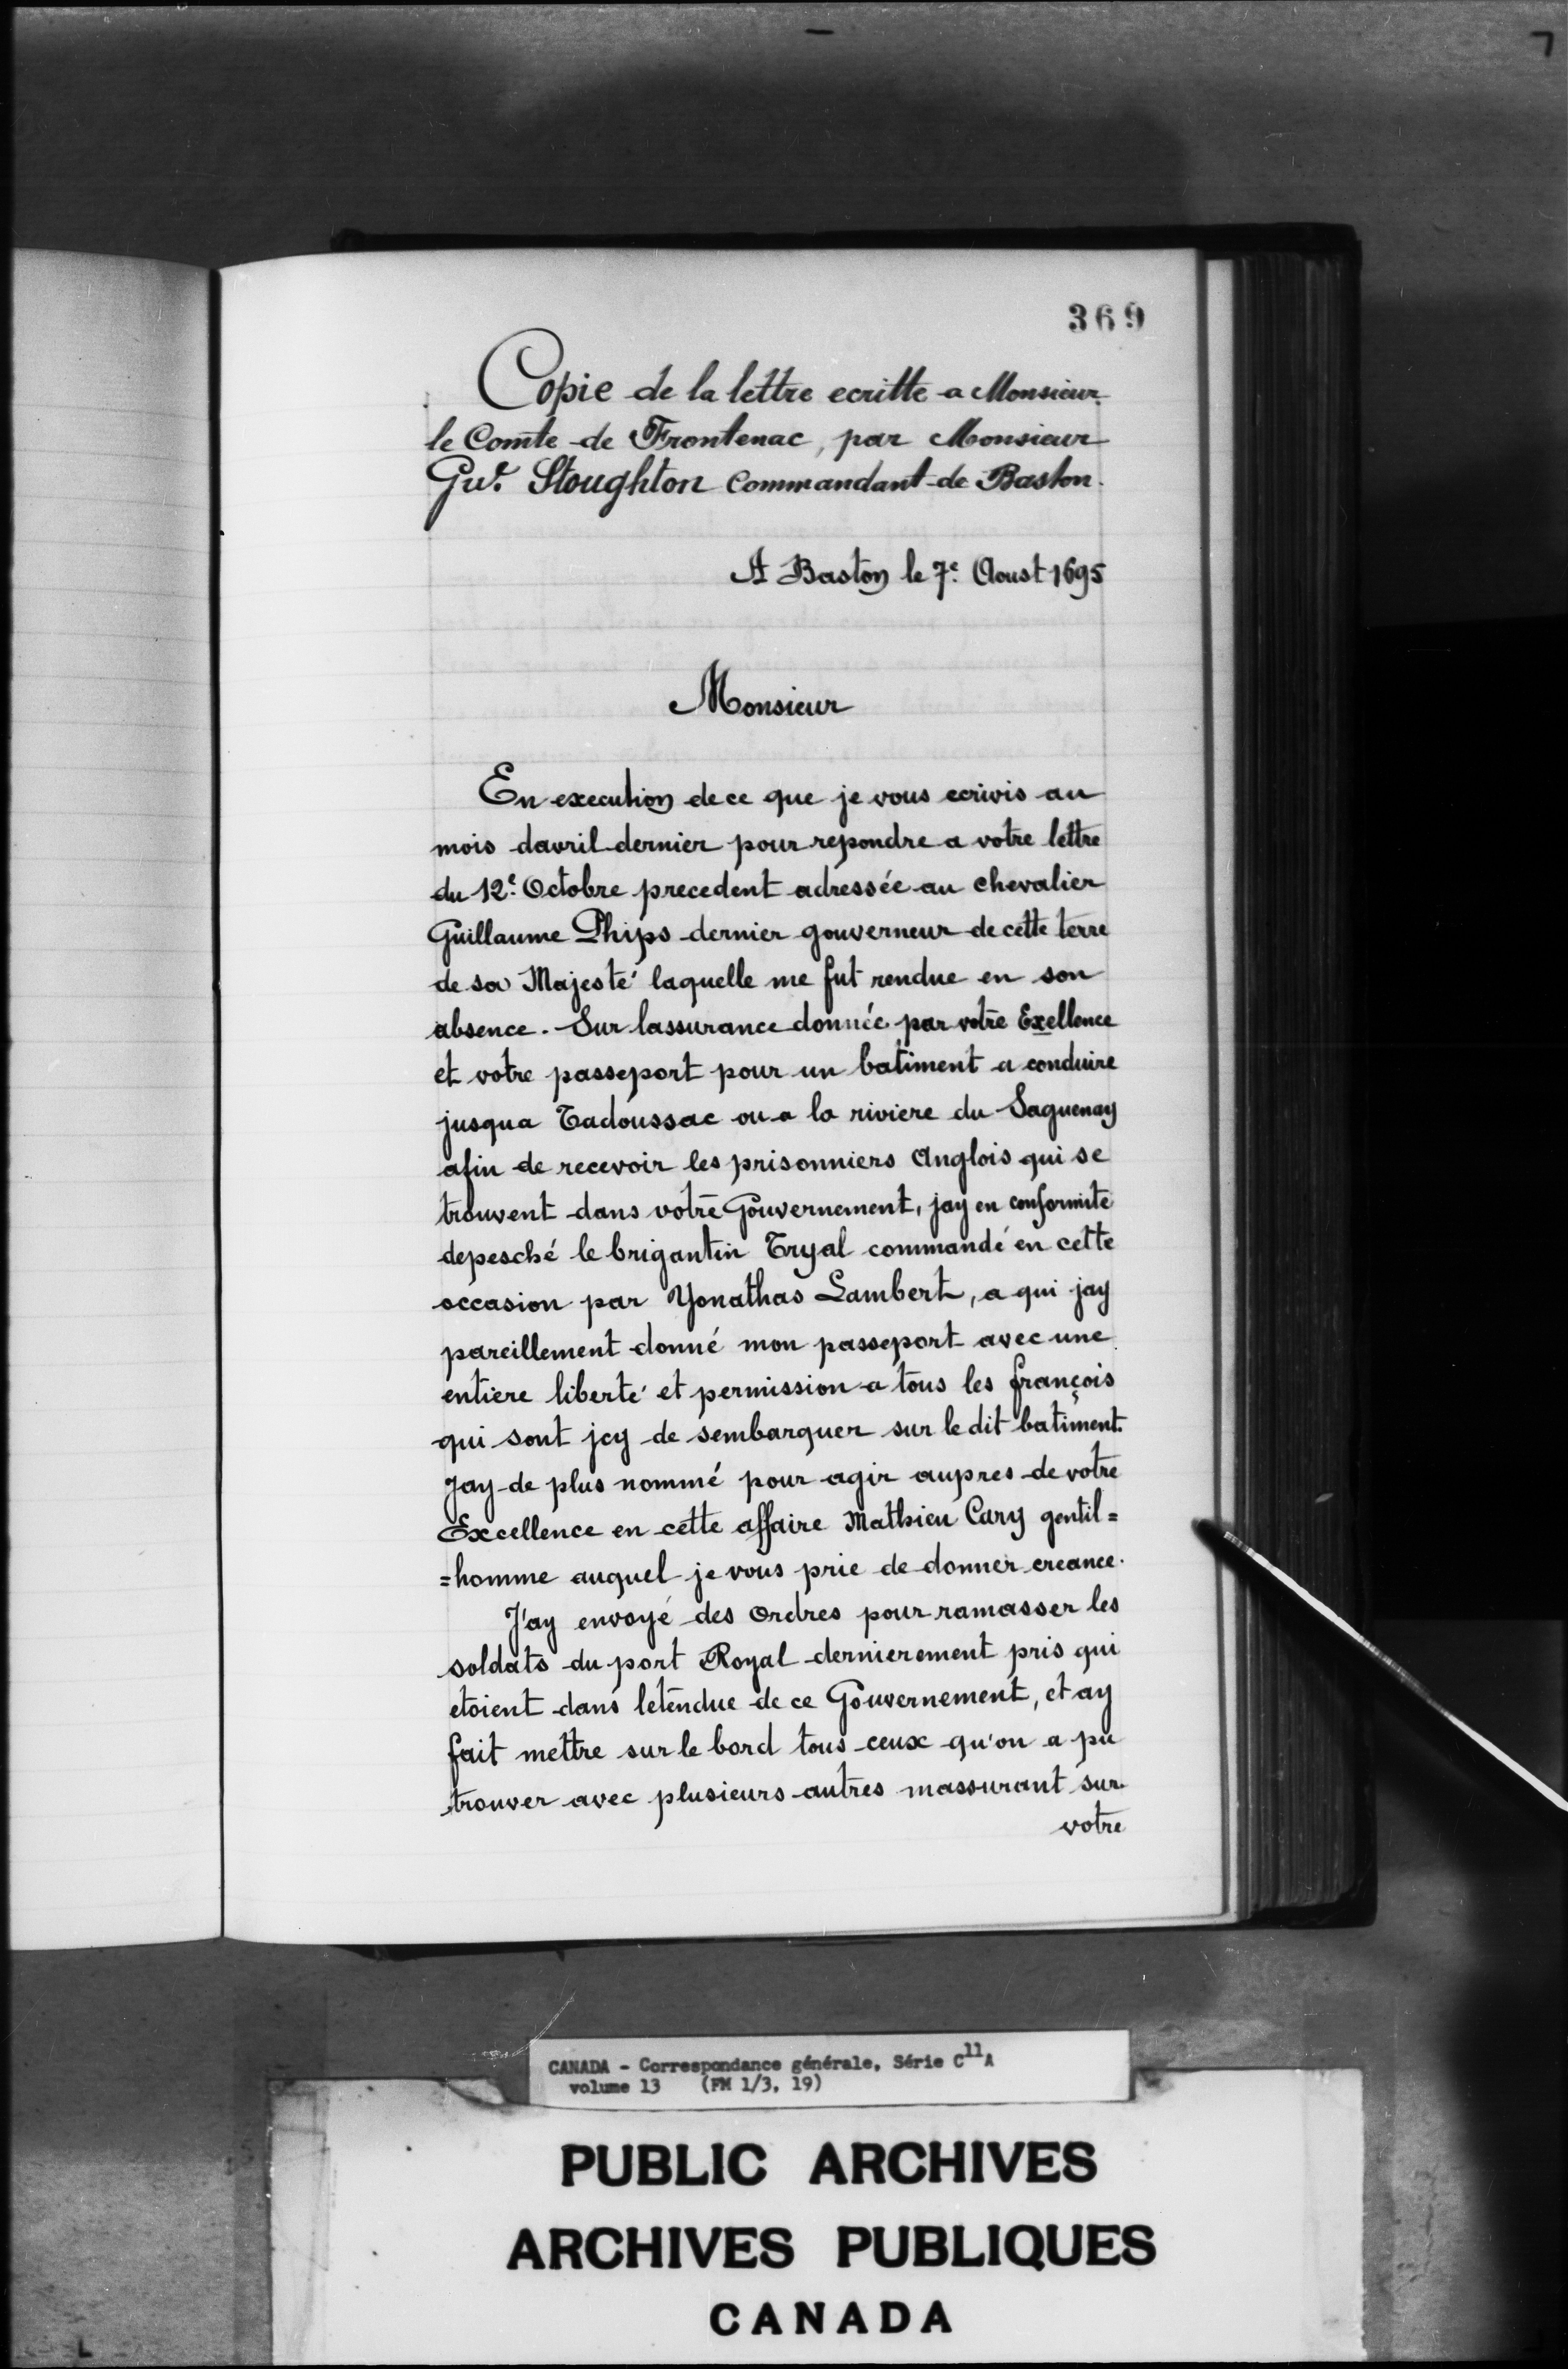 369
Copie de la lettre ecritte a Monsieur
le Comte de Frontenac, par Monsieur
Gu.e Stoughton Commandant de Baston.
A Baston le 7e. Aoust 1695
Monsieur
En execution de ce que je vous ecrivis au
mois davril dernier pour repondre a votre lettre
du 12e. Octobre precedent adressée au chevalier
Guillaume Phips dernier gouverneur de cette terre
de sa Majesté laquelle me fut rendue en son
absence. Sur lassurance donnée par votre Exellence
et votre passeport pour un batiment a conduire
jusqua Tadoussac ou a la riviere du Saguenay
afin de recevoir les prisonniers Anglois qui se
trouvent dans votre Gouvernement, jay en conformité
depesché le brigantin Tryal commandé en cette
occasion par Yonathas Lambert, a qui jay
pareillement donné mon passeport avec une
entiere liberté et permission a tous les françois
qui sont jcy de sembarquer sur le dit batiment.
Jay de plus nommé pour agir aupres de votre
Excellence en cette affaire Mathieu Cary gentil=
=homme auquel je vous prie de donner creance.
J'ay envoyé des Ordres pour ramasser les
soldats du port Royal dernierement pris qui
etoient dans letendue de ce Gouvernement, et ay
fait mettre sur le bord tous ceux qu'on a pu
trouver avec plusieurs autres massurant sur
votre
CANADA - Correspondance générale, Série C11A
volume 13 (FM 1/3, 19)
PUBLIC ARCHIVES
ARCHIVES PUBLIQUES
CANADA